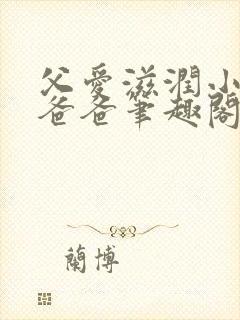 父愛滋潤小
爸爸筆趣閣
蘭博